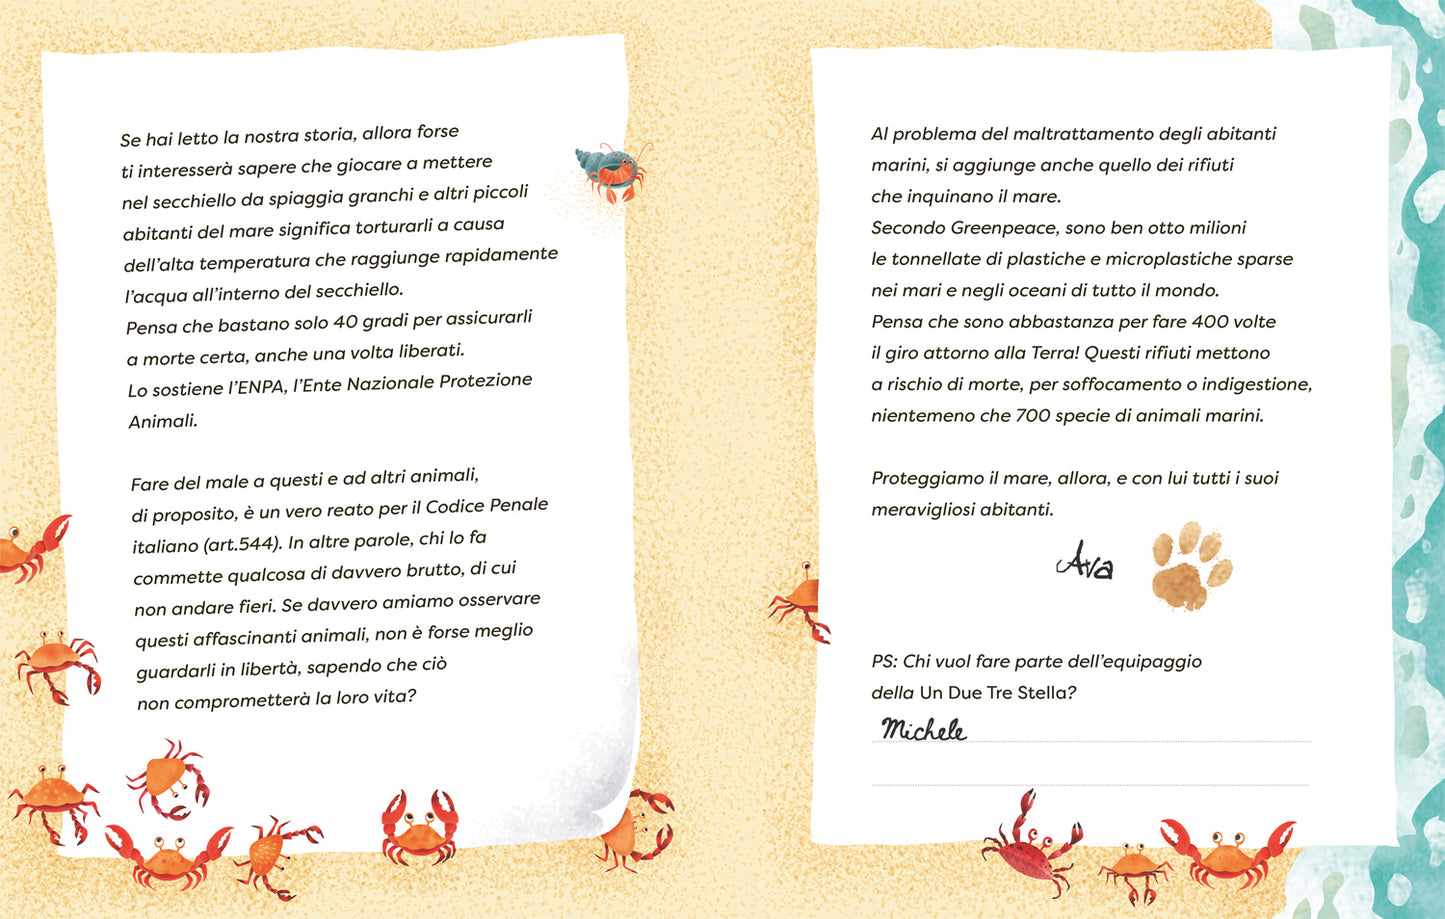 Se hai letto la nostra storia, allora forse
ti interesserà sapere che giocare a mettere
nel secchiello da spiaggia granchi e altri piccoli
abitanti del mare significa torturarli a causa
dell'alta temperatura che raggiunge rapidamente
l'acqua all'interno del secchiello.
Pensa che bastano solo 40 gradi per assicurarli
a morte certa, anche una volta liberati.
Lo sostiene l'ENPA, l'Ente Nazionale Protezione
Animali.
Fare del male a questi e ad altri animali,
di proposito, è un vero reato per il Codice Penale
italiano (art.544). In altre parole, chi lo fa
commette qualcosa di davvero brutto, di cui
non andare fieri. Se davvero amiamo osservare
questi affascinanti animali, non è forse meglio
guardarli in libertà, sapendo che ciò
non comprometterà la loro vita?
Al problema del maltrattamento degli abitanti
marini, si aggiunge anche quello dei rifiuti
che inquinano il mare.
Secondo Greenpeace, sono ben otto milioni
le tonnellate di plastiche e microplastiche sparse
nei mari e negli oceani di tutto il mondo.
Pensa che sono abbastanza per fare 400 volte
il giro attorno alla Terra! Questi rifiuti mettono
a rischio di morte, per soffocamento o indigestione,
nientemeno che 700 specie di animali marini.
Proteggiamo il mare, allora, e con lui tutti i suoi
meravigliosi abitanti.
Ava
PS: Chi vuol fare parte dell'equipaggio
della Un Due Tre Stella?
Michele